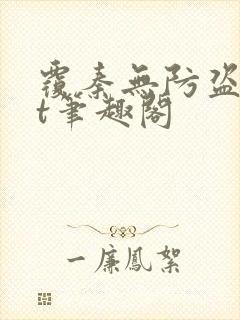 覆秦無防盜
t筆趣閣
一廉鳳絮